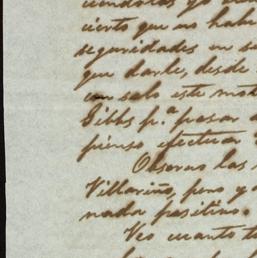 cierto que no habi
seguridades en se
que darle, desde
un solo este mot
Gibbs p.ª pasar a
pienso efectuar
Observo las
Villariño, pero y
nada positivo.
Veo cuanto t